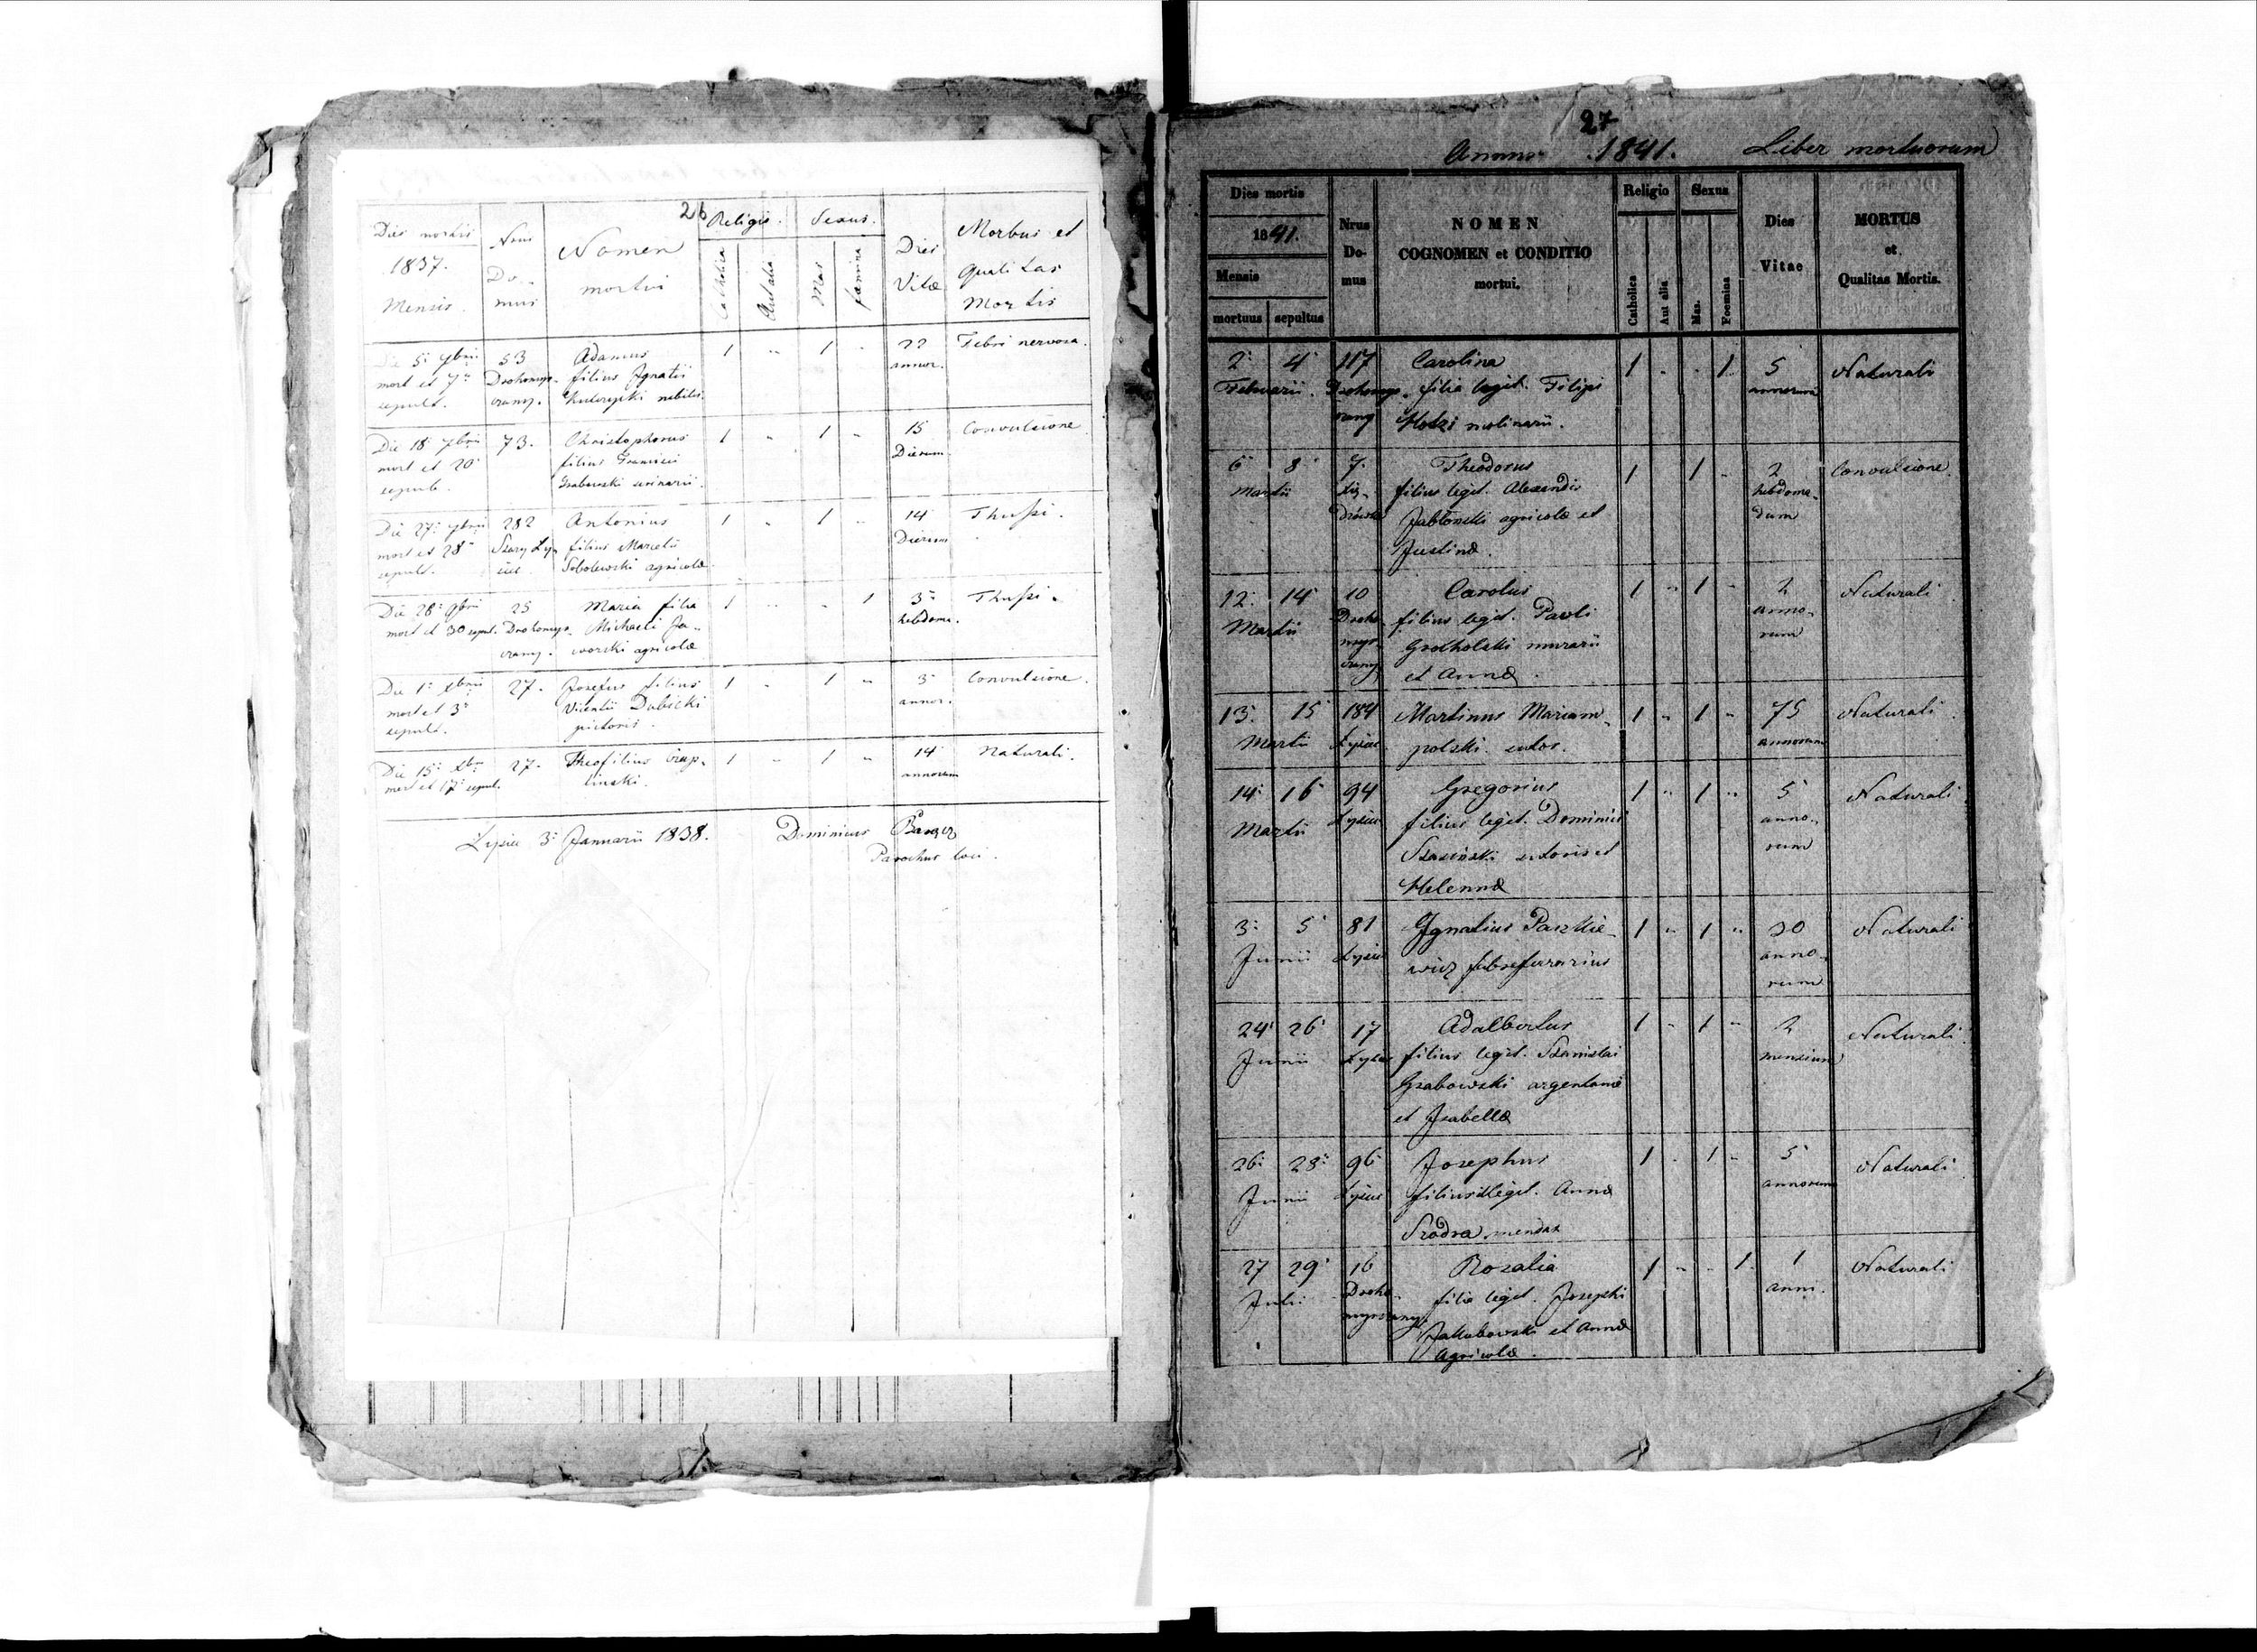 26
Dies mortis
1837.
Mensis.
Nrus
Do-
mus
Nomen
mortui
Religio.
Catholica
Aut alia
Sexus.
Mas
Famina
Dies
Vitæ
Morbus et
Qualitas
Mortis
Die 5. 7bris
mort et 7a
sepult.
53
Drohomyr-
czany.
Adamus
filius Ignatii
nobilis
1 " 1 "
22
annor.
Febri nervosa.
Die 18. 7bris
mort et 20
sepult.
73.
Christophorus
filius Francisci
Grabowski
1 " 1 "
15
Dierum
Convulsione
Die 27. 7bris
mort et 28
sepult.
282
Stary Ly-
siec
Antonius
filius Marcelii
Sobolewski agricolæ
1 " 1 "
14
Dierum
Thussi.
Die 28. 9bris
mort et 30 sepul.
25
Drohomyr-
czany.
Maria filia
Michaeli Ja-
worski agricolæ
1 " " 1
3
hebdom.
Thussi.
Die 1. xbris
mort et 3
sepult.
27.
Josefus filius
Vicentii Dubicki
pictoris.
1 " 1 "
3
annor.
Convulsione.
Die 15. xbris
mort et 17 sepul.
27.
Theofilius Czap-
linski.
1 " 1 "
14
annorum
Naturali.
Lysiec 3. Januarii 1838. Dominicus
Parochus loci.
27
Anno 1841. Liber mortuorum
Dies mortis
1841.
Mensis
mortuus sepultus
Nrus
Do-
mus
NOMEN
COGNOMEN et CONDITIO
mortui.
Religio
Catholica
Aut alia
Sexus
Mas.
Foemina
Dies
Vitae
MORTUS
et
Qualitas Mortis.
2. 4
Februarii.
117
Drohomyr-
czany
Carolina
filia legit. Filipi
molinarii.
1 " " 1
5
annorum
Naturali
6 8
Martii
7.
Theodorus
filius legit. Alexandri
Jabłoński agricolæ et
Justinæ.
1 1 "
2
hebdoma-
dum
Convulsione.
12. 14
Martii
10
Droho-
myr-
czany
Carolus
filius legit. Pauli
Grocholski murarii
et Annæ.
1 " 1 "
2
anno-
rum
Naturali
13. 15
Martii
184
Lysiec
Martinus Mariam-
polski sutor.
1 " 1 "
75
annorum
Naturali
14. 16
Martii
94
Lysiec
Gregorius
filius legit. Dominici
sutoris et
Helennæ
1 " 1 "
5
anno-
rum
Naturali
3. 5
Junii
81
Lysiec
Ignatius Paszkie-
wicz
1 " 1 "
30
anno-
rum
Naturali
24 26
Junii
17
Lysiec
Adalbertus
filius legit. Stanislai
Grabowski
et Isabellæ
1 " 1 "
2
mensium
Naturali
26. 28.
Junii
96
Lysiec
Josephus
filius illegit. Annæ
1 " 1 "
5
annorum
Naturali
27 29
Julii
16
Droho-
myrczany
Rozalia
filia legit. Josephi
Jakubowski et Annæ
Agricolæ.
1 " " 1
1
anni.
Naturali